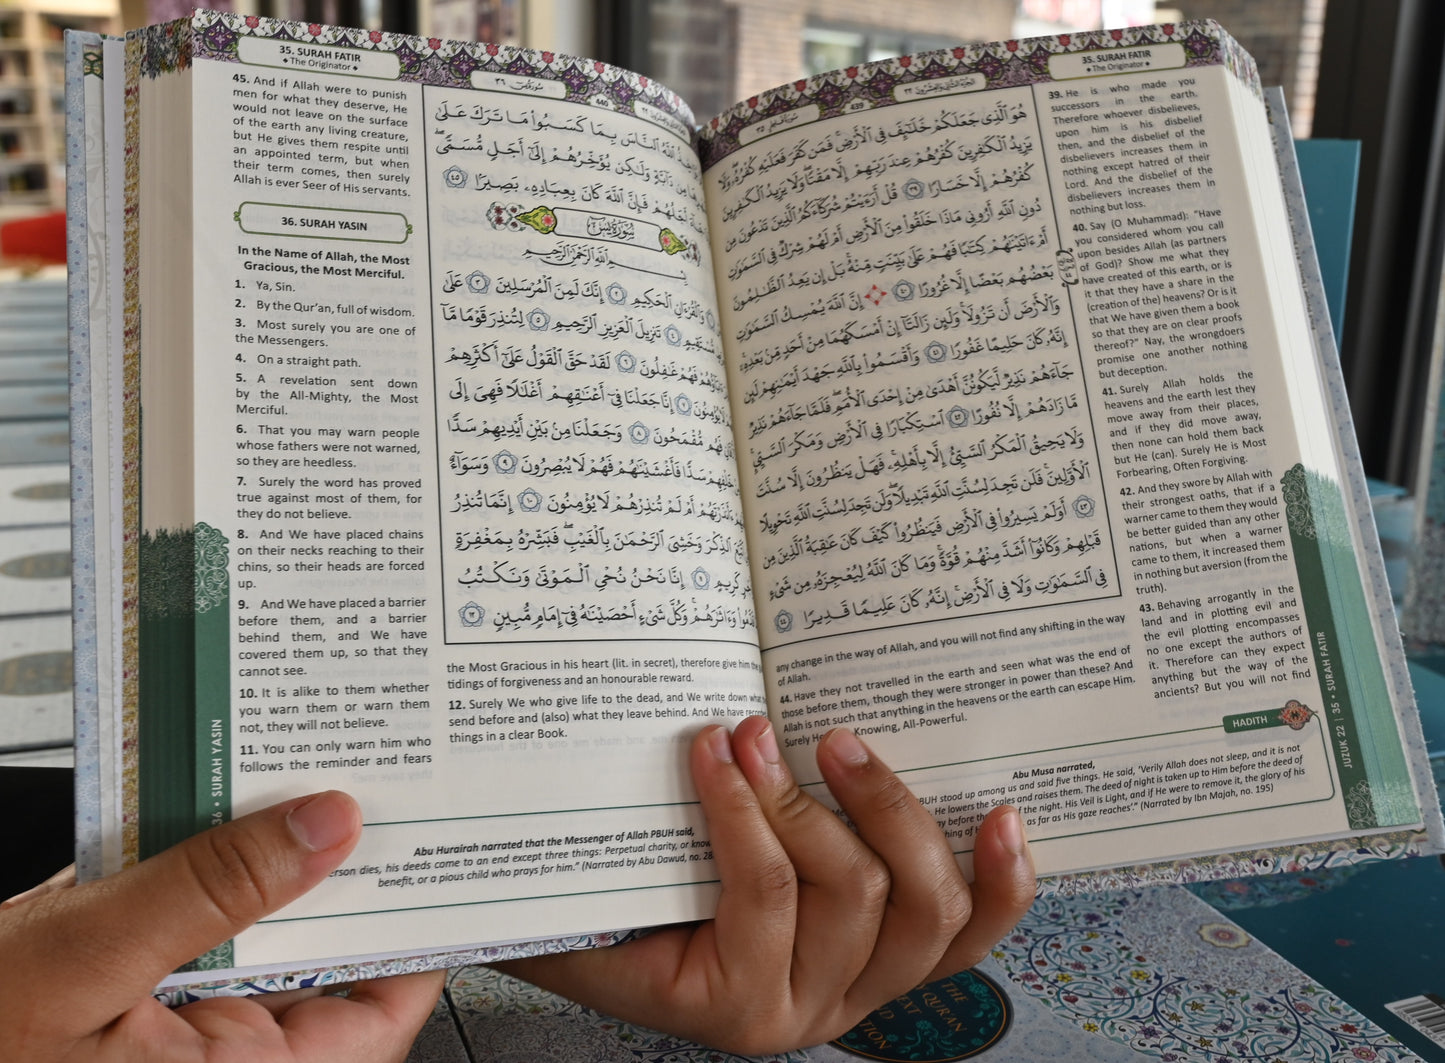 35. SURAH FATIR
The Originator
39. He is who made you
successors in the earth.
Therefore whoever disbelieves,
upon him is his disbelief
then, and the disbelief of the
disbelievers increases them in
nothing except hatred of their
Lord. And the disbelief of the
disbelievers increases them in
nothing but loss.
40. Say (O Muhammad): “Have
you considered whom you call
upon besides Allah (as partners
of God)? Show me what they
have created of this earth, or is
it that they have a share in the
(creation of the) heavens? Or is it
that We have given them a book
so that they are on clear proofs
thereof?” Nay, the wrongdoers
promise one another nothing
but deception.
41. Surely Allah holds the
heavens and the earth lest they
move away from their places,
and if they did move away,
then none can hold them back
but He (can). Surely He is Most
Forbearing, Often Forgiving.
42. And they swore by Allah with
their strongest oaths, that if a
warner came to them they would
be better guided than any other
nations, but when a warner
came to them, it increased them
in nothing but aversion (from the
truth).
43. Behaving arrogantly in the
land and in plotting evil and
the evil plotting encompasses
no one except the authors of
it. Therefore can they expect
anything but the way of the
ancients? But you will not find
439
هُوَ ٱلَّذِى جَعَلَكُمْ خَلَٰٓئِفَ فِى ٱلْأَرْضِ ۚ فَمَن كَفَرَ فَعَلَيْهِ كُفْرُهُۥ ۖ وَلَا
يَزِيدُ ٱلْكَٰفِرِينَ كُفْرُهُمْ عِندَ رَبِّهِمْ إِلَّا مَقْتًا ۖ وَلَا يَزِيدُ ٱلْكَٰفِرِينَ
كُفْرُهُمْ إِلَّا خَسَارًا ٣٩ قُلْ أَرَءَيْتُمْ شُرَكَآءَكُمُ ٱلَّذِينَ تَدْعُونَ مِن
دُونِ ٱللَّهِ أَرُونِى مَاذَا خَلَقُوا۟ مِنَ ٱلْأَرْضِ أَمْ لَهُمْ شِرْكٌ فِى ٱلسَّمَٰوَٰتِ
أَمْ ءَاتَيْنَٰهُمْ كِتَٰبًا فَهُمْ عَلَىٰ بَيِّنَتٍ مِّنْهُ ۚ بَلْ إِن يَعِدُ ٱلظَّٰلِمُونَ
بَعْضُهُم بَعْضًا إِلَّا غُرُورًا ٤٠ إِنَّ ٱللَّهَ يُمْسِكُ ٱلسَّمَٰوَٰتِ
وَٱلْأَرْضَ أَن تَزُولَا ۚ وَلَئِن زَالَتَآ إِنْ أَمْسَكَهُمَا مِنْ أَحَدٍ مِّنۢ بَعْدِهِۦٓ ۚ
إِنَّهُۥ كَانَ حَلِيمًا غَفُورًا ٤١ وَأَقْسَمُوا۟ بِٱللَّهِ جَهْدَ أَيْمَٰنِهِمْ لَئِن
جَآءَهُمْ نَذِيرٌ لَّيَكُونُنَّ أَهْدَىٰ مِنْ إِحْدَى ٱلْأُمَمِ ۖ فَلَمَّا جَآءَهُمْ نَذِيرٌ
مَّا زَادَهُمْ إِلَّا نُفُورًا ٤٢ ٱسْتِكْبَارًا فِى ٱلْأَرْضِ وَمَكْرَ ٱلسَّيِّئِ ۚ
وَلَا يَحِيقُ ٱلْمَكْرُ ٱلسَّيِّئُ إِلَّا بِأَهْلِهِۦ ۚ فَهَلْ يَنظُرُونَ إِلَّا سُنَّتَ
ٱلْأَوَّلِينَ ۚ فَلَن تَجِدَ لِسُنَّتِ ٱللَّهِ تَبْدِيلًا ۖ وَلَن تَجِدَ لِسُنَّتِ ٱللَّهِ تَحْوِيلًا
٤٣ أَوَلَمْ يَسِيرُوا۟ فِى ٱلْأَرْضِ فَيَنظُرُوا۟ كَيْفَ كَانَ عَٰقِبَةُ ٱلَّذِينَ مِن
قَبْلِهِمْ وَكَانُوٓا۟ أَشَدَّ مِنْهُمْ قُوَّةً ۚ وَمَا كَانَ ٱللَّهُ لِيُعْجِزَهُۥ مِن شَىْءٍ
فِى ٱلسَّمَٰوَٰتِ وَلَا فِى ٱلْأَرْضِ ۚ إِنَّهُۥ كَانَ عَلِيمًا قَدِيرًا ٤٤
any change in the way of Allah, and you will not find any shifting in the way
of Allah.
44. Have they not travelled in the earth and seen what was the end of
those before them, though they were stronger in power than these? And
Allah is not such that anything in the heavens or the earth can escape Him.
Surely He Knowing, All-Powerful.
HADITH
Abu Musa narrated,
PBUH stood up among us and said five things. He said, ‘Verily Allah does not sleep, and it is not
He lowers the Scales and raises them. The deed of night is taken up to Him before the deed of
before the of the night. His Veil is Light, and if He were to remove it, the glory of his
as far as His gaze reaches’.” (Narrated by Ibn Majah, no. 195)
JUZUK 22 | 35 • SURAH FATIR
35. SURAH FATIR
The Originator
45. And if Allah were to punish
men for what they deserve, He
would not leave on the surface
of the earth any living creature,
but He gives them respite until
an appointed term, but when
their term comes, then surely
Allah is ever Seer of His servants.
36. SURAH YASIN
In the Name of Allah, the Most
Gracious, the Most Merciful.
1. Ya, Sin.
2. By the Qur’an, full of wisdom.
3. Most surely you are one of
the Messengers.
4. On a straight path.
5. A revelation sent down
by the All-Mighty, the Most
Merciful.
6. That you may warn people
whose fathers were not warned,
so they are heedless.
7. Surely the word has proved
true against most of them, for
they do not believe.
8. And We have placed chains
on their necks reaching to their
chins, so their heads are forced
up.
9. And We have placed a barrier
before them, and a barrier
behind them, and We have
covered them up, so that they
cannot see.
10. It is alike to them whether
you warn them or warn them
not, they will not believe.
11. You can only warn him who
follows the reminder and fears
سورة يس ٣٦
440
ٱللَّهُ ٱلنَّاسَ بِمَا كَسَبُوا۟ مَا تَرَكَ عَلَىٰ
مِن دَآبَّةٍ وَلَٰكِن يُؤَخِّرُهُمْ إِلَىٰٓ أَجَلٍ مُّسَمًّى ۖ
أَجَلُهُمْ فَإِنَّ ٱللَّهَ كَانَ بِعِبَادِهِۦ بَصِيرًا ٤٥
سُورَةُ يسٓ
بِسْمِ ٱللَّهِ ٱلرَّحْمَٰنِ ٱلرَّحِيمِ
وَٱلْقُرْءَانِ ٱلْحَكِيمِ ٢ إِنَّكَ لَمِنَ ٱلْمُرْسَلِينَ ٣ عَلَىٰ
مُّسْتَقِيمٍ ٤ تَنزِيلَ ٱلْعَزِيزِ ٱلرَّحِيمِ ٥ لِتُنذِرَ قَوْمًا مَّآ
فَهُمْ غَٰفِلُونَ ٦ لَقَدْ حَقَّ ٱلْقَوْلُ عَلَىٰٓ أَكْثَرِهِمْ
يُؤْمِنُونَ ٧ إِنَّا جَعَلْنَا فِىٓ أَعْنَٰقِهِمْ أَغْلَٰلًا فَهِىَ إِلَى
فَهُم مُّقْمَحُونَ ٨ وَجَعَلْنَا مِنۢ بَيْنِ أَيْدِيهِمْ سَدًّا
خَلْفِهِمْ سَدًّا فَأَغْشَيْنَٰهُمْ فَهُمْ لَا يُبْصِرُونَ ٩ وَسَوَآءٌ
ءَأَنذَرْتَهُمْ أَمْ لَمْ تُنذِرْهُمْ لَا يُؤْمِنُونَ ١٠ إِنَّمَا تُنذِرُ
ٱلذِّكْرَ وَخَشِىَ ٱلرَّحْمَٰنَ بِٱلْغَيْبِ ۖ فَبَشِّرْهُ بِمَغْفِرَةٍ
كَرِيمٍ ١١ إِنَّا نَحْنُ نُحْىِ ٱلْمَوْتَىٰ وَنَكْتُبُ
وَءَاثَٰرَهُمْ ۚ وَكُلَّ شَىْءٍ أَحْصَيْنَٰهُ فِىٓ إِمَامٍ مُّبِينٍ ١٢
the Most Gracious in his heart (lit. in secret), therefore give him the
tidings of forgiveness and an honourable reward.
12. Surely We who give life to the dead, and We write down what
send before and (also) what they leave behind. And We have
things in a clear Book.
Abu Hurairah narrated that the Messenger of Allah PBUH said,
dies, his deeds come to an end except three things: Perpetual charity, or
benefit, or a pious child who prays for him.” (Narrated by Abu Dawud, no.
36 • SURAH YASIN